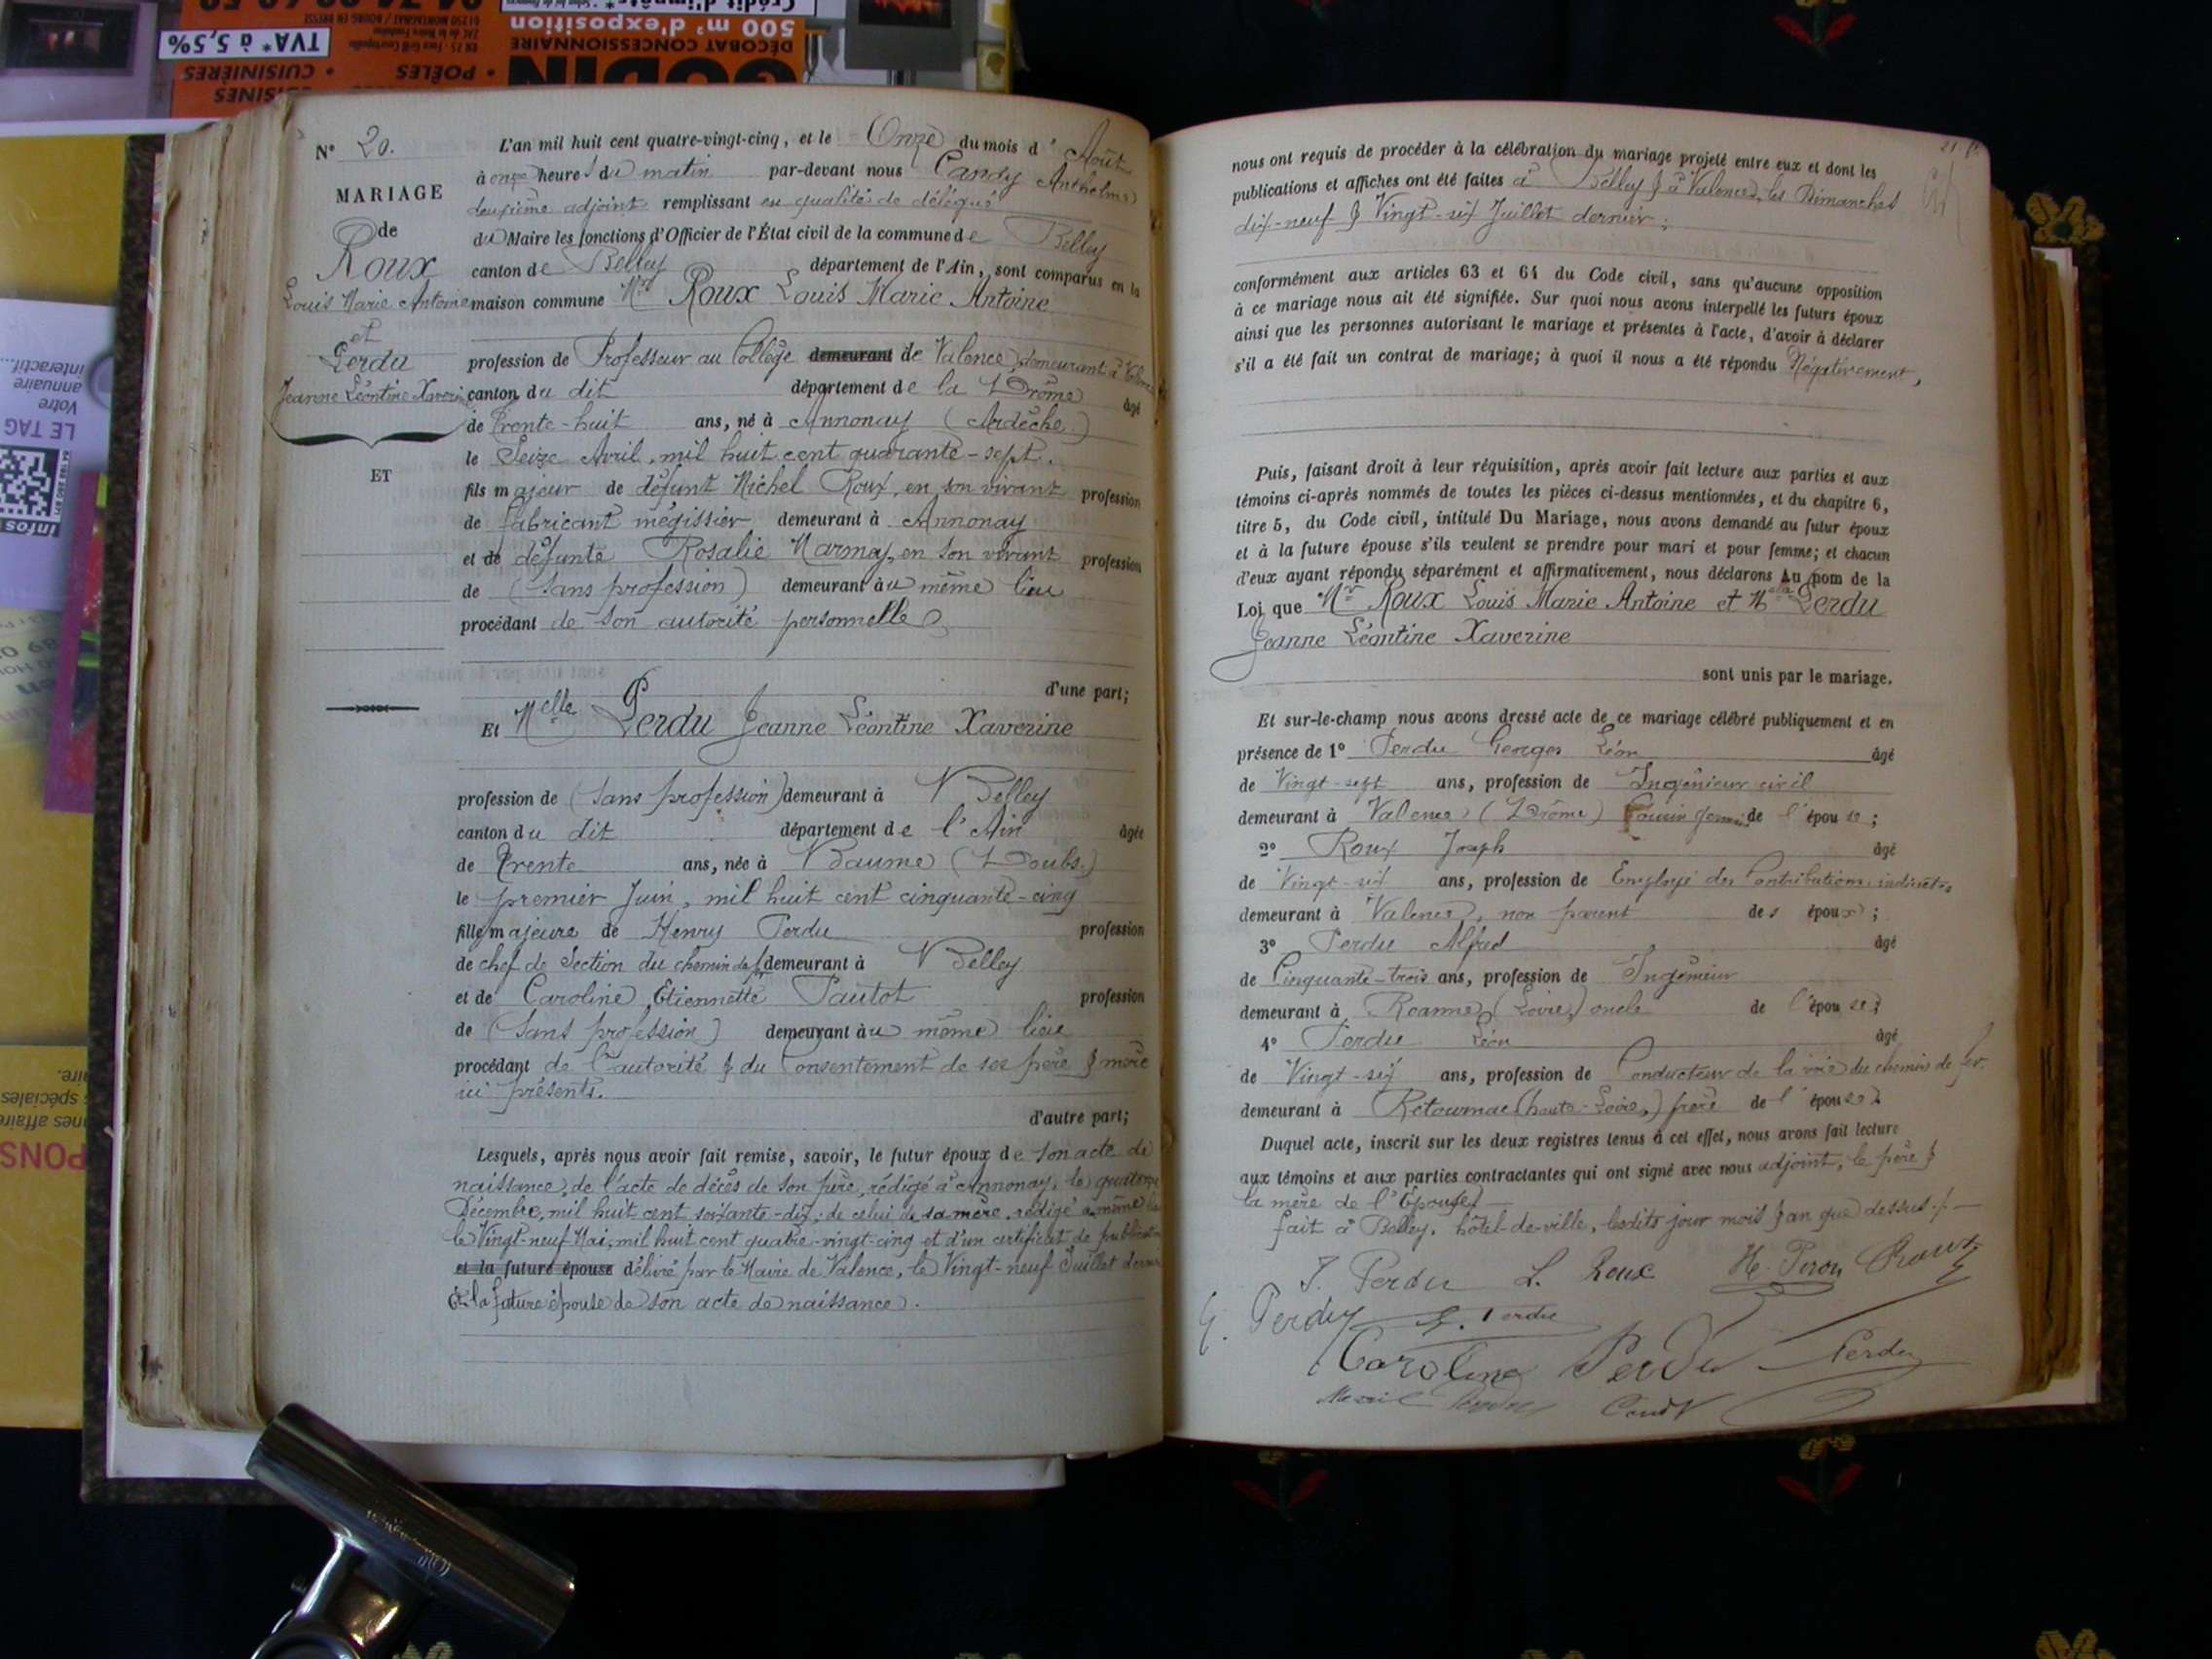 TVA* à 5,5%
500 m² d'exposition
DÉCOBAT CONCESSIONNAIRE
GODIN
• POÊLES
• CUISINIÈRES
LE TAG
Votre
annuaire
interactif...
infos
N° 20.
MARIAGE
de
Roux
Louis Marie Antoine
et
Perdu
Jeanne Léontine Xaverine
ET
L'an mil huit cent quatre-vingt-cinq, et le Onze du mois d'Août
à onze heures du matin par-devant nous Candy Anthelme
deuxième adjoint remplissant en qualité de délégué
du Maire les fonctions d'Officier de l'État civil de la commune de Belley
canton de Belley département de l'Ain, sont comparus en la
maison commune Mr Roux Louis Marie Antoine
profession de Professeur au Collège demeurant de Valence, demeurant à Valence
canton du dit département de la Drôme âgé
de Trente-huit ans, né à Annonay (Ardèche)
le Seize Avril, mil huit cent quarante-sept.
fils majeur de défunt Michel Roux, en son vivant profession
de fabricant mégissier demeurant à Annonay
et de défunte Rosalie Marmay, en son vivant profession
de (sans profession) demeurant au même lieu
procédant de son autorité personnelle
d'une part;
Et Melle Perdu Jeanne Léontine Xaverine
profession de (sans profession) demeurant à Belley
canton du dit département de l'Ain âgée
de Trente ans, née à Baume (Doubs.)
le premier Juin, mil huit cent cinquante-cinq
fille majeure de Henry Perdu profession
de chef de Section du chemin de fer demeurant à Belley
et de Caroline Etiennette Pautot profession
de (sans profession) demeurant au même lieu
procédant de l'autorité & du Consentement de ses père & mère
ici présents.
d'autre part;
Lesquels, après nous avoir fait remise, savoir, le futur époux de son acte de
naissance, de l'acte de décès de son père, rédigé à Annonay, le quatorze
Décembre, mil huit cent soixante-dix; de celui de sa mère, rédigé au même lieu
le Vingt-neuf Mai, mil huit cent quatre-vingt-cinq et d'un certificat de publication
et la future épouse délivré par le Maire de Valence, le Vingt-neuf Juillet dernier
Et la future épouse de son acte de naissance.
nous ont requis de procéder à la célébration du mariage projeté entre eux et dont les
publications et affiches ont été faites à Belley & à Valence, les Dimanches
dix-neuf & Vingt-six Juillet dernier;
conformément aux articles 63 et 64 du Code civil, sans qu'aucune opposition
à ce mariage nous ait été signifiée. Sur quoi nous avons interpellé les futurs époux
ainsi que les personnes autorisant le mariage et présentes à l'acte, d'avoir à déclarer
s'il a été fait un contrat de mariage; à quoi il nous a été répondu Négativement,
Puis, faisant droit à leur réquisition, après avoir fait lecture aux parties et aux
témoins ci-après nommés de toutes les pièces ci-dessus mentionnées, et du chapitre 6,
titre 5, du Code civil, intitulé Du Mariage, nous avons demandé au futur époux
et à la future épouse s'ils veulent se prendre pour mari et pour femme; et chacun
d'eux ayant répondu séparément et affirmativement, nous déclarons Au nom de la
Loi que Mr Roux Louis Marie Antoine et Melle Perdu
Jeanne Léontine Xaverine
sont unis par le mariage.
Et sur-le-champ nous avons dressé acte de ce mariage célébré publiquement et en
présence de 1° Perdu Georges Léon âgé
de Vingt-sept ans, profession de Ingénieur civil
demeurant à Valence (Drôme) Cousin germain de l'épouse;
2° Roux Joseph âgé
de Vingt-six ans, profession de Employé des Contributions indirectes
demeurant à Valence, non parent des époux;
3° Perdu Alfred âgé
de Cinquante-trois ans, profession de Ingénieur
demeurant à Roanne (Loire) oncle de l'épouse;
4° Perdu Léon âgé
de Vingt-six ans, profession de Conducteur de la voie du chemin de fer.
demeurant à Retournac (haute-Loire,) frère de l'épouse
Duquel acte, inscrit sur les deux registres tenus à cet effet, nous avons fait lecture
aux témoins et aux parties contractantes qui ont signé avec nous adjoint, le père &
la mère de l'Epouse.
fait à Belley, hôtel-de-ville, lesdits jour mois & an que dessus./.
J. Perdu L. Roux
G. Perdu Perdu
Caroline Perdu Perdu